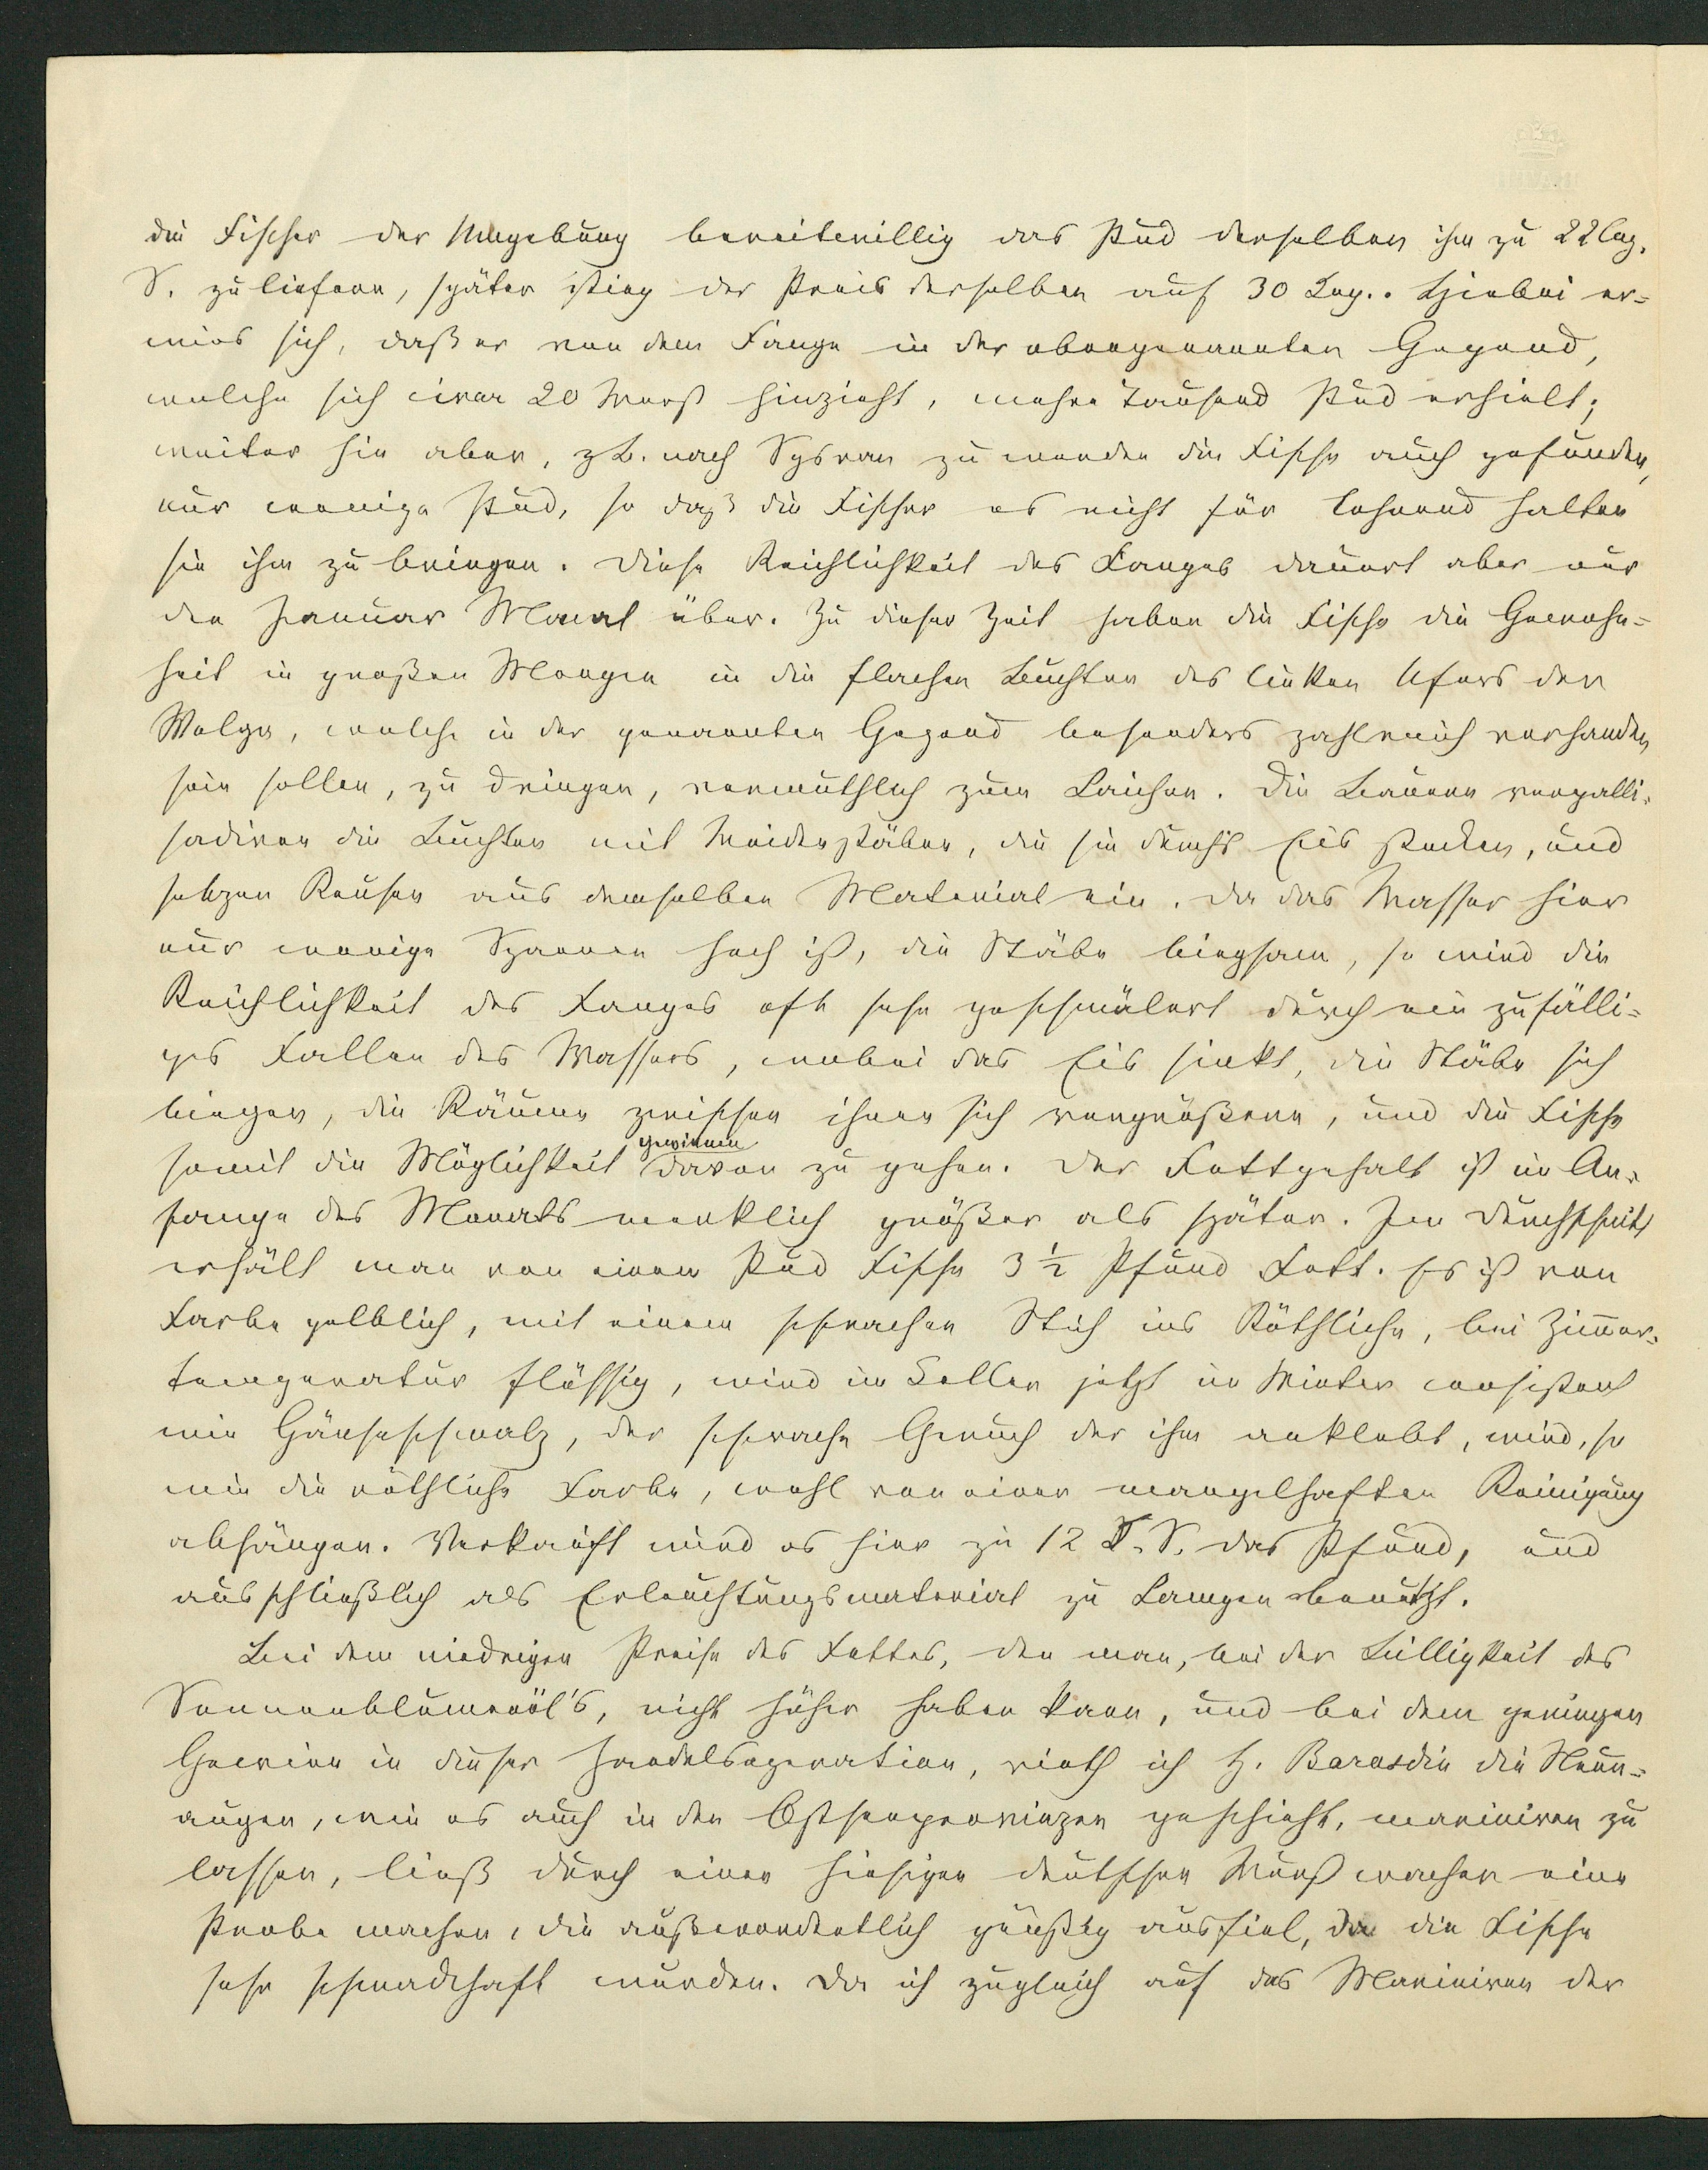 die Fischer der Umgebung bereitwillig das Pud derselben ihm zu 22 Cop.
S. zu liefern, später stieg der Preis derselben auf 30 Cop.. Hiebei er=
wies sich, daß er von dem Fange in der obengenannten Gegend,
welche sich circa 20 Werst hinzieht, mehre tausend Pud erhielt;
weiter hin aber, z B. nach Sysran zu werden die Fische auch gefunden,
nur wenige Pud, so daß die Fischer es nicht für lohnend halten
sie ihm zu bringen. Diese Reichlichkeit des Fanges dauert aber nur
den Januar Monat über. Zu dieser Zeit haben die Fische die Gewohn=
heit in großen Mengen in die flachen Buchten des linken Ufers der
Wolga, welche in der genannten Gegend besonders zahlreich vorhanden
sein sollen, zu dringen, vermuthlich zum Laichen. Die Bauern verpalli=
sadiren die Buchten mit Weidenstäben, die sie durch's Eis stecken, und
setzen Reusen aus demselben Material ein. Da das Wasser hier
nur wenige Spannen hoch ist, die Stäbe biegsam, so wird die
Reichlichkeit des Fanges oft sehr geschmälert durch ein zufälli=
ges Fallen des Wassers, wobei das Eis sinkt, die Stäbe sich
biegen, die Räume zwischen ihnen sich vergrößern, und die Fische
somit die Möglichkeit gewinnen davon zu gehen. Der Fettgehalt ist im An=
fange des Monats merklich größer als später. Im Durchschnitt
erhält man von einem Pud Fische 3 ½ Pfund Fett. Es ist von
Farbe gelblich, mit einem schwachen Stich ins Röthliche, bei Zimmer=
temperatur flüssig, wird im Keller jetzt im Winter consistent
wie Gänseschmalz, der schwache Geruch der ihm anklebt, wird, so
wie die röthliche Farbe, wohl von einer mangelhaften Reinigung
abhängen. Verkauft wird es hier zu 12 K. S. das Pfund, und
ausschließlich als Erleuchtungsmaterial zu Lampen benutzt.
Bei dem niedrigen Preise des Fettes, den man, bei der Billigkeit des
Sonnenblumenöl's, nicht höher haben kann, und bei dem geringen
Gewinn in dieser Handelsoperation, rieth ich H. Barasdin die Neun=
augen, wie es auch in den Ostseeprovinzen geschieht, mariniren zu
lassen, ließ durch einen hiesigen deutschen Wurstmacher eine
Probe machen, die außerordentlich günstig ausfiel, da die Fische
sehr schmackhaft wurden. Da ich zugleich auf das Mariniren der